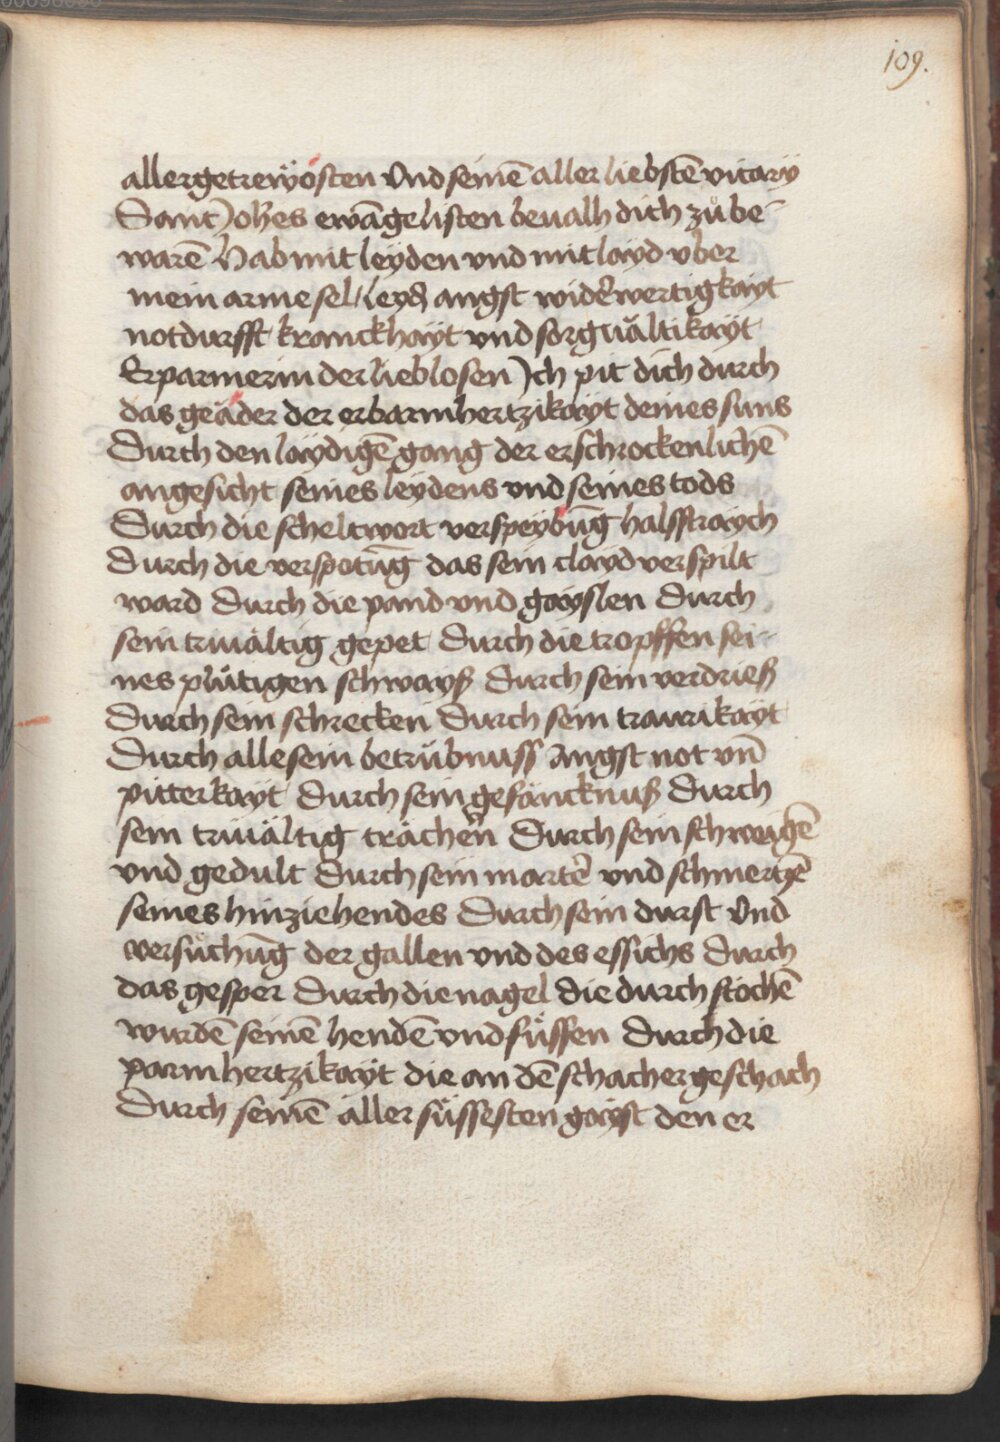 109.
allergetrewösten Vnd seinē aller liebstē vicarÿ
Sant Johēs ewāgelisten beualh dich zů be-
warē Hab mit leyden vnd mit layd vber
mein arme sel leyd angst widerwertigkayt
notdurfft kranckhayt vnd sorguältikayt
Erparmerin der lieblosen Jch pit dich durch
das geäder der erbarmhertzikayt deines suns
Durch den laydigē gang der erschrockenlichē
angesicht seines leydens vnd seines tods
Durch die scheltwort verspeybūg halsstraych
Durch die verspotūg das sein clayd verspilt
ward Durch die pand vnd gayslen Durch
sein triuältig gepet Durch die tropffen sei-
nes plůtigen schwayß Durch sein verdrieß
Durch sein schrecken Durch sein traurikayt
Durch alle sein betrübnuss Angst not vn̄
pitterkayt Durch sein gefäncknuß Durch
sein triuältig trächen Durch sein schweigē
vnd gedult Durch sein marter vnd schmertzē
seines hinziehendes Durch sein durst Vnd
versůchūg der gallen vnd des essichs Durch
das gesper Durch die nagel die durch stochē
wurdē seinē hendē vnd füssen Durch die
parmhertzikayt die an dē schacher geschach
Durch seinē aller süssesten gayst den er